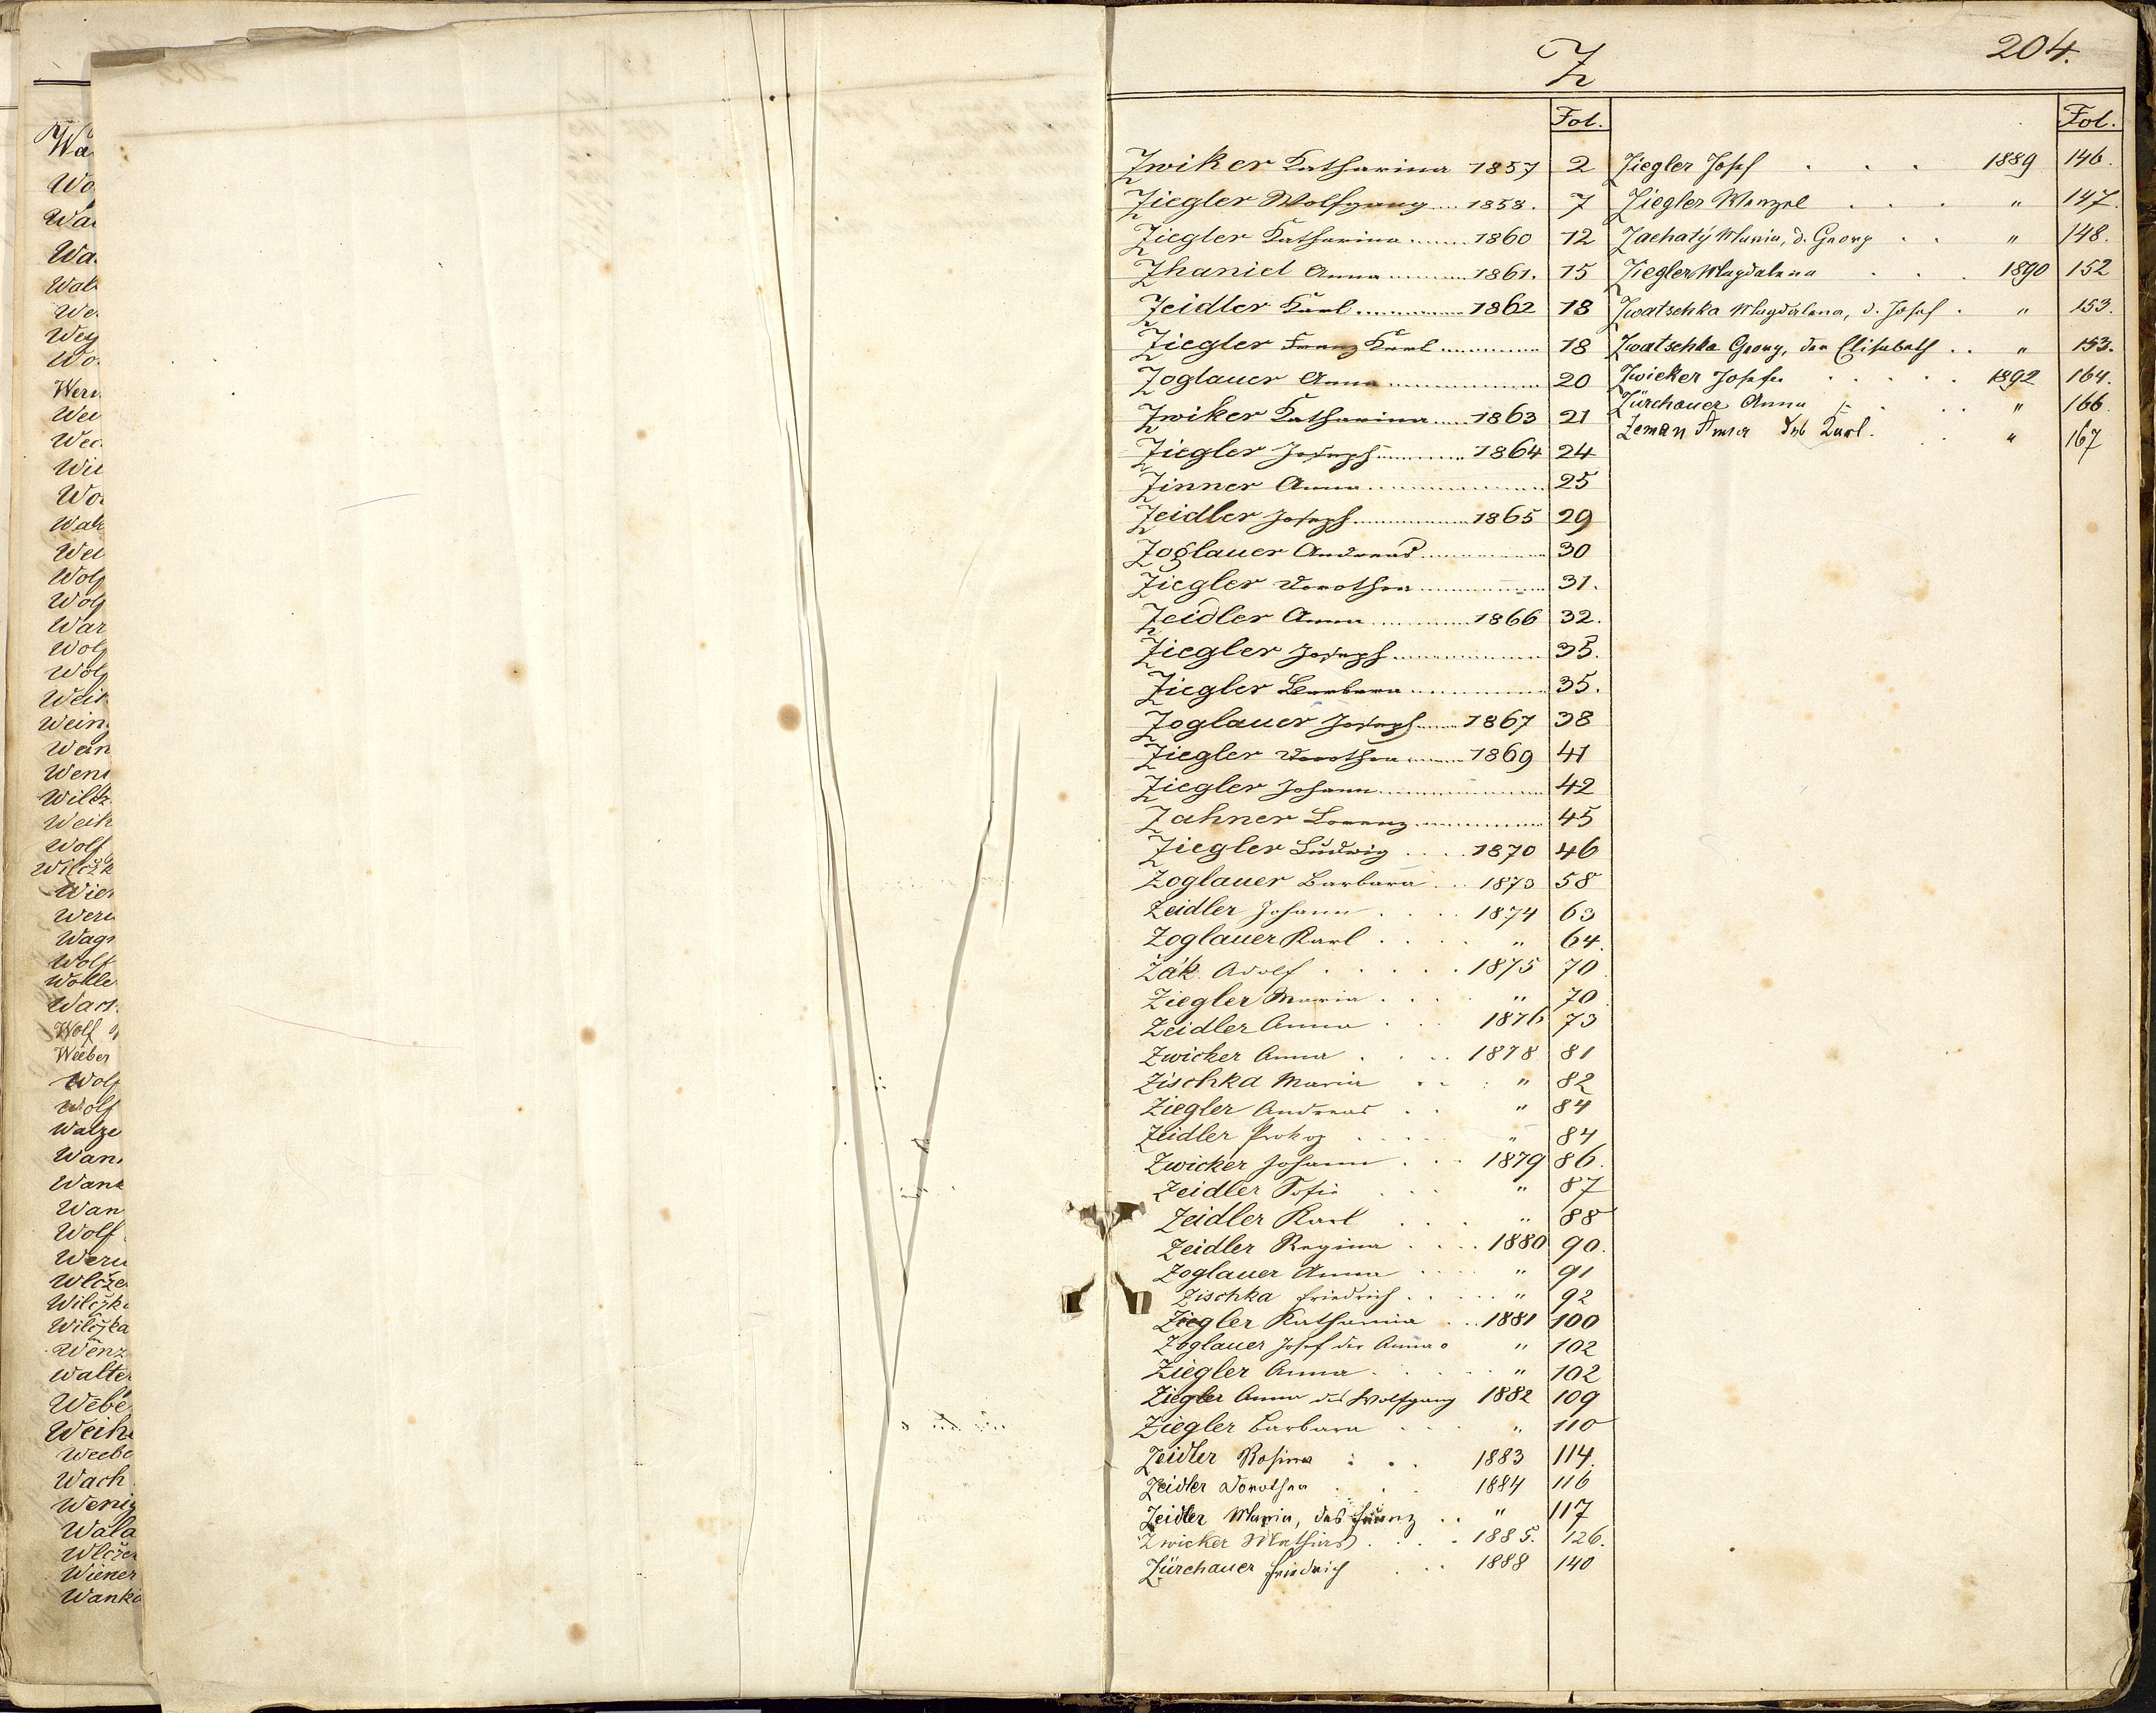 Wa
Wo
Wa
Wa
Wal
We
Wey
Wo
Wer
Wei
Wec
Wil
Wo
Walt
Wel
Wolf
Wolf
War
Wolf
Wolf
Weih
Wein
Wein
Wen
Wilcz
Weih
Wolf
Wilčzk
Wie
Wer
Wag
Wolf
Wolle
Wolf
Weeber
Wolf
Wolf
Walze
Wan
Wank
Wan
Wolf
Wer
Wlcze
Wilčzk
Wilčzka
Wenz
Walte
Webe
Weih
Weebe
Wach
Wenig
Wala
Wlcze
Wiener
Wanka
Z 204.
Fol.
Zwiker Katharina 1857 2
Ziegler Wolfgang 1858. 7
Ziegler Katharina 1860 12
Zhaniel Anna 1861. 15
Zeidler Karl 1862 18
Ziegler Franz Karl 18
Zoglauer Anna 20
Zwiker Katharina 1863 21
Ziegler Joseph 1864 24
Zinner Anna 25
Zeidler Joseph 1865 29
Zoglauer Andreas 30
Ziegler Dorothea 31.
Zeidler Anna 1866 32.
Ziegler Joseph 35.
Ziegler Barbara 35.
Zoglauer Joseph 1867 38
Ziegler Dorothea 1869 41
Ziegler Johann 42
Zahner Lorenz 45
Ziegler Ludwig 1870 46
Zoglauer Barbara 1873 58
Zeidler Johann 1874 63
Zoglauer Karl " 64.
Žák Adolf 1875 70
Ziegler Maria " 70
Zeidler Anna 1876 73
Zwicker Anna 1878 81
Zischka Maria " 82
Ziegler Andreas " 84
Zeidler Prokop " 84
Zwicker Johann 1879 86.
Zeidler Sofie " 87
Zeidler Karl " 88
Zeidler Regina 1880 90.
Zoglauer Anna " 91
Zischka Friedrich " 92
Ziegler Katharina 1881 100
Zoglauer Josef der Anna " 102
Ziegler Anna " 102
Ziegler Anna des Wolfgang 1882 109
Ziegler Barbara " 110
Zeidler Rosina 1883 114.
Zeidler Dorothea 1884 116
Zeidler Maria, des Franz " 117
Zwicker Mathias 1885. 126.
Zürchauer Friedrich 1888 140
Fol.
Ziegler Josef 1889 146.
Ziegler Wenzel " 147.
Zachatý Maria, d. Georg " 148.
Ziegler Magdalena 1890 152
Zwatschka Magdalena, d. Josef " 153.
Zwatschka Georg, der Elisabeth " 153.
Zwicker Josefa 1892 164.
Zürchauer Anna " 166.
Zeman Anna des Karl. " 167